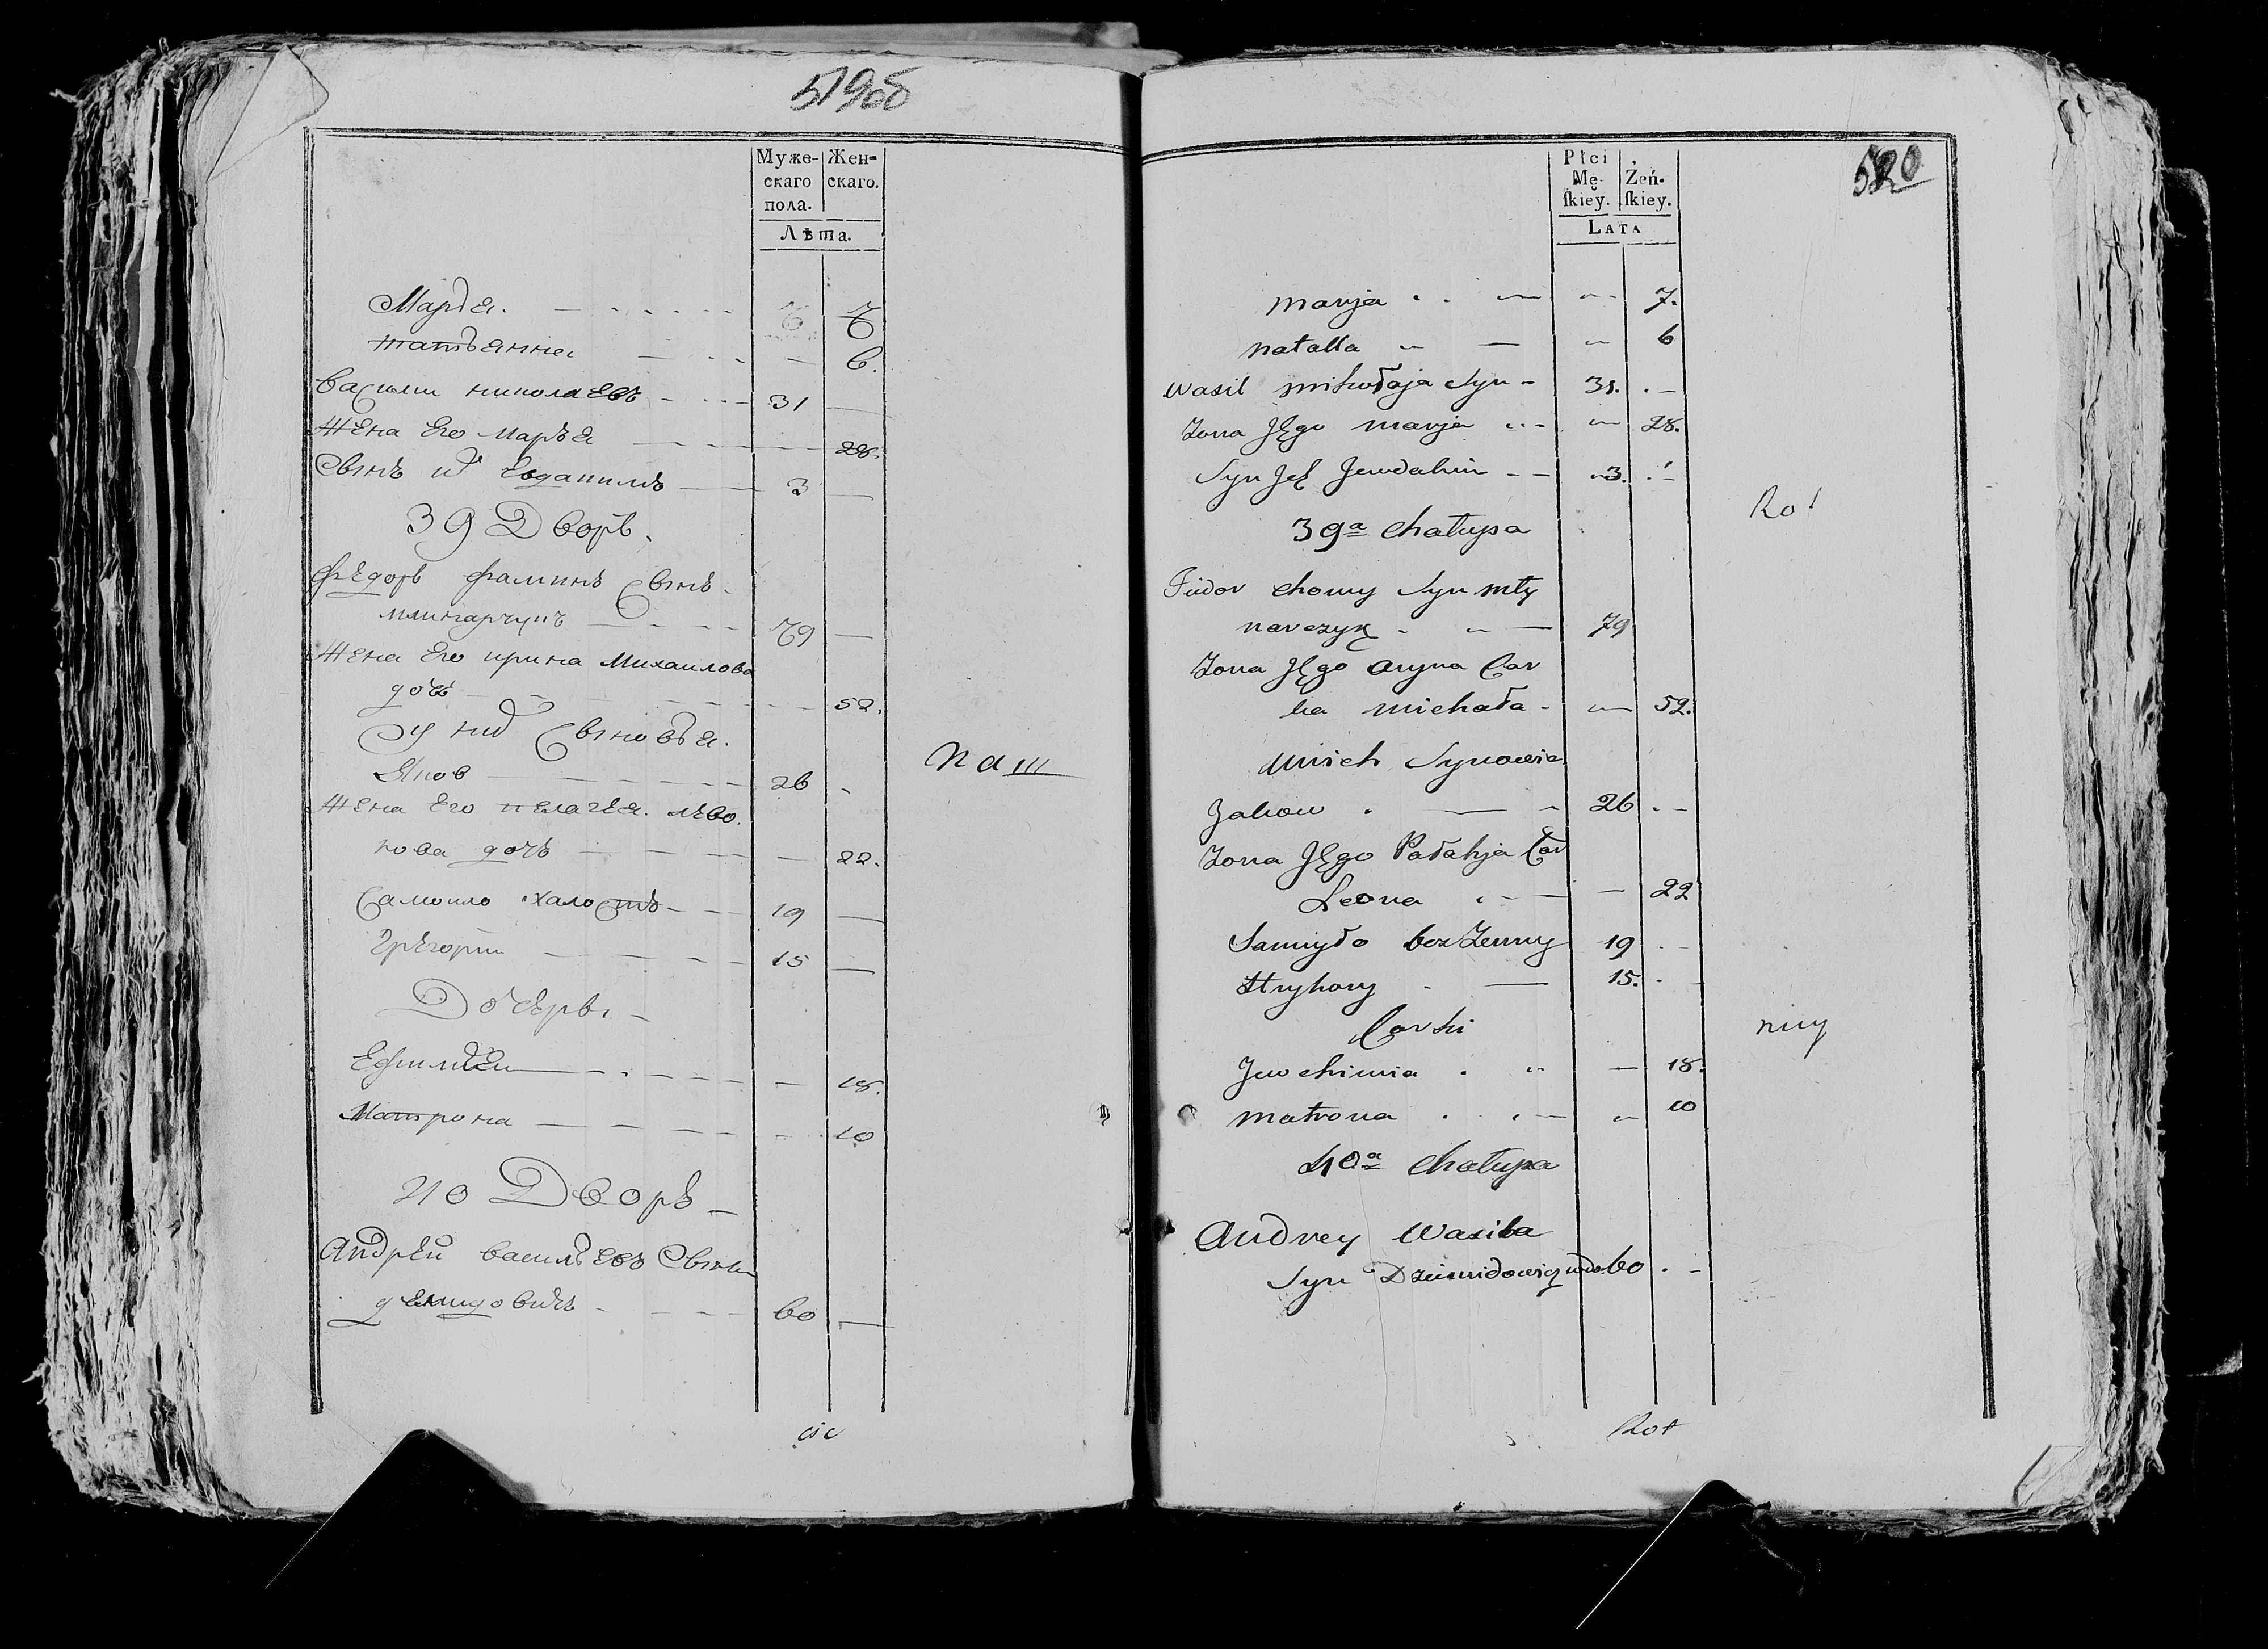 519об
Муже- Жен-
скаго скаго.
пола.
Лѣта.
Марья. 7
татьянна 6.
василии николаевъ 31
Жена Его марья 28.
Сынъ их Евдакимъ 3
39 Дворъ.
федоръ фаминъ Сынъ
млинарчукъ 79
Жена Его ирина михаилова
дочь 52.
У них Сыновья.
Яков 26
Жена Его пелагея. лево
нова дочь 22.
Самоило холостъ 19
Григории 15
Дочери
Ефимия 18.
Матрона 10
40 Дворъ
Андрей васильевъ Сынъ
демидовичъ 60
наш
520
Płci
Mę- Żeń-
ſkiey. ſkiey.
LATA
marja 7.
natalla 6
wasil mikołaja Syn 31.
Zona Jęgo marja 28.
Syn Jch Jewdakim 3.
39a chałupa
Fiudor chomy Syn mły
narczyk 79
Zona Jęgo aryna Cor
ka michała 52.
unich Synowie
Jakow 26
Zona Jęgo Pałahja Cor
Leona 22
Samuyło bezZenny 19
Hryhory 15.
Corki
Jewchimia 18.
matrona 10
40a chałupa
Andrey Wasila
Syn Dziemidowicz wdo. 60
Rot